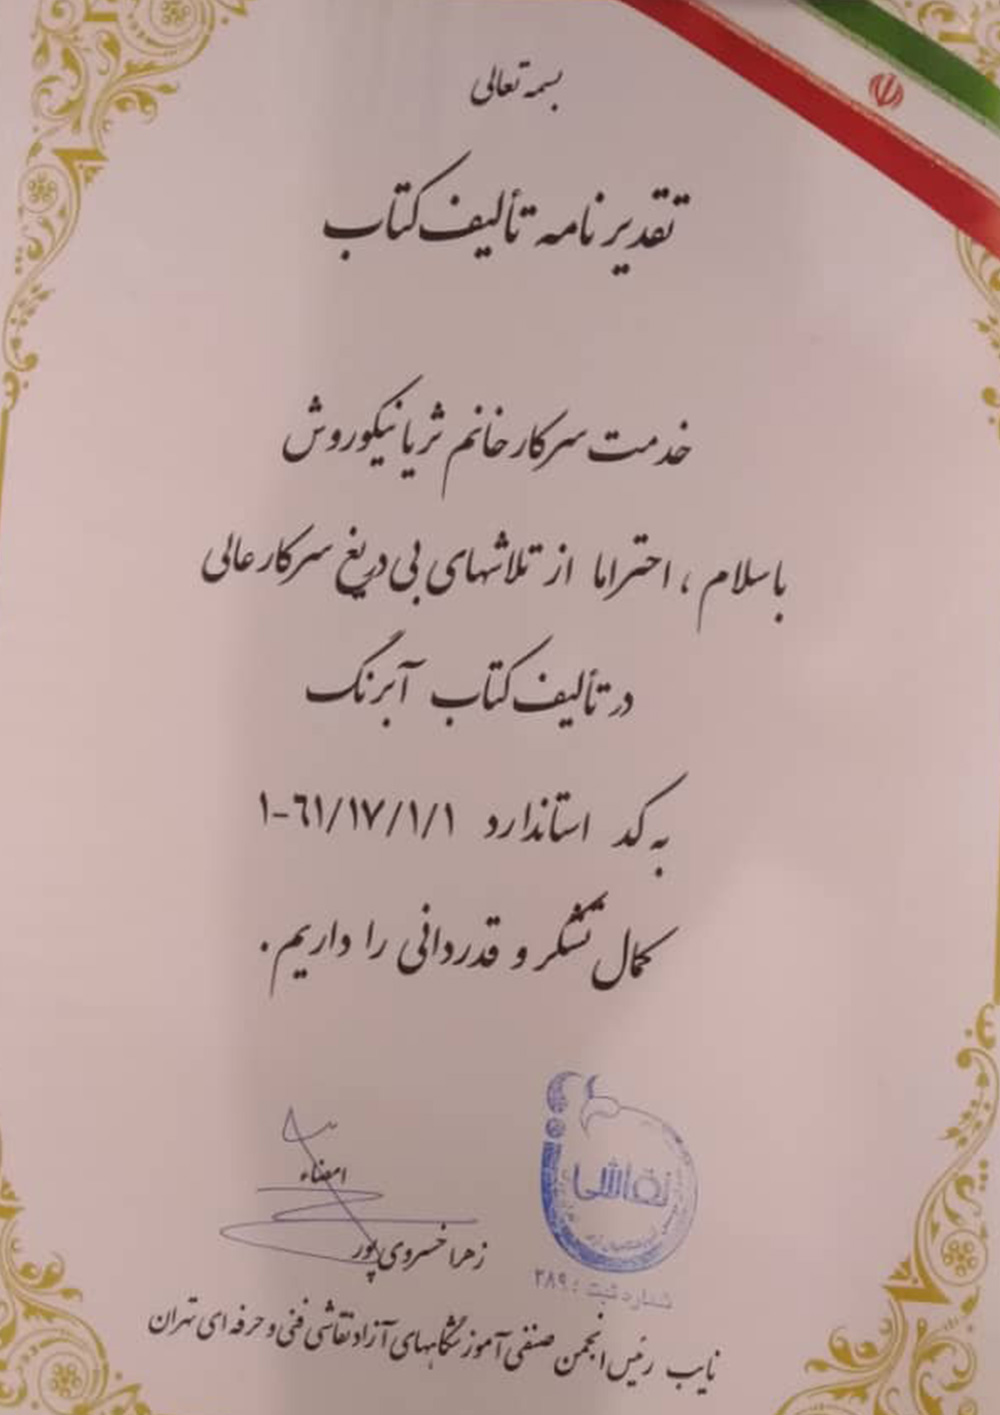 بسمه تعالی
تقدیر نامه تألیف کتاب
خدمت سرکار خانم ثریا نیکوروش
باسلام ، احتراما از تلاشهای بی دریغ سرکار عالی
در تألیف کتاب آبرنگ
به کد استاندارد ۱-۶۱/۱۷/۱/۱
کمال تشکر و قدردانی را داریم .
نقاشی
شماره ثبت : ۳۸۹
امضاء
زهرا خسروی پور
نایب رئیس انجمن صنفی آموزشگاههای آزاد نقاشی فنی و حرفه ای تهران